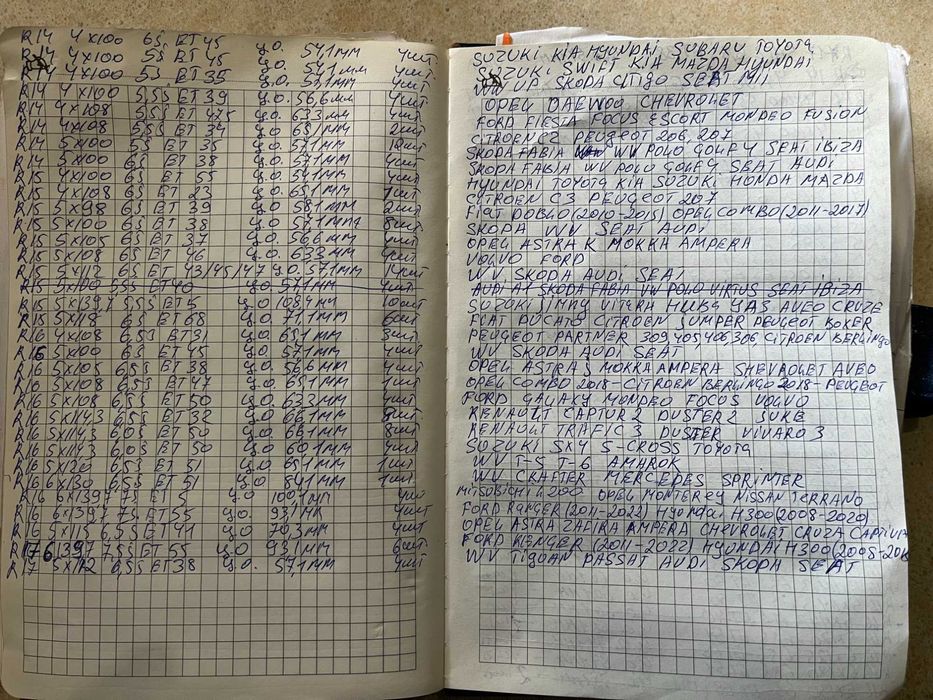 R14 4x100 6J ET45 ц.о. 54,1мм 4шт
R14 4x100 5J ET45 ц.о. 54,1мм 4шт
R14 4x100 5J ET35 ц.о. 57,1мм 4шт
R14 4x100 5,5J ET39 ц.о. 56,6мм 4шт
R14 4x108 5,5J ET47,5 ц.о. 63,3мм 4шт
R14 4x108 5,5J ET34 ц.о. 65,1мм 2шт
R14 5x100 5J ET35 ц.о. 57,1мм
R14 5x100 6J ET38 ц.о. 57,1мм 4шт
R15 4x100 6J ET55 ц.о. 54,1мм 4шт
R15 4x108 6J ET23 ц.о. 65,1мм 1шт
R15 5x98 6J ET39 ц.о. 58,1мм 2шт
R15 5x100 6J ET38 ц.о. 57,1мм 8шт
R15 5x105 6J ET37 ц.о. 56,6мм 4шт
R15 5x108 6J ET46 ц.о. 63,3мм 4шт
R15 5x112 6J ET43/45/47 ц.о. 57,1мм 14шт
R15 5x100 5,5J ET40 ц.о. 57,1мм 4шт
R15 5x139,7 5,5J ET5 ц.о. 108,4мм 10шт
R15 5x118 6J ET68 ц.о. 71,1мм 6шт
R16 4x108 6,5J ET31 ц.о. 65,1мм 3шт
R16 5x100 6J ET45 ц.о. 57,1мм 4шт
R16 5x105 6,5J ET38 ц.о. 56,6мм 4шт
R16 5x108 6,5J ET47 ц.о. 65,1мм 1шт
R16 5x108 6,5J ET50 ц.о. 63,3мм 4шт
R16 5x114,3 6,5J ET32 ц.о. 66,1мм
R16 5x114,3 6,0J ET50 ц.о. 66,1мм 8шт
R16 5x114,3 6,0J ET50 ц.о. 60,1мм 4шт
R16 5x120 6,5J ET51 ц.о. 65,1мм 1шт
R16 6x130 6,5J ET51 ц.о. 84,1мм 1шт
R16 6x139,7 7J ET5 ц.о. 100,1мм 4шт
R16 6x139,7 7J ET55 ц.о. 93,1мм 4шт
R16 5x115 6,5J ET41 ц.о. 70,3мм 4шт
R17 6x139,7 7,5J ET55 ц.о. 93,1мм 6шт
R17 5x112 6,5J ET38 ц.о. 57,1мм 4шт
SUZUKI KIA HYUNDAI SUBARU TOYOTA
SUZUKI SWIFT KIA MAZDA HYUNDAI
WV UP SKODA CITIGO SEAT MII
OPEL DAEWOO CHEVROLET
FORD FIESTA FOCUS ESCORT MONDEO FUSION
CITROEN C2 PEUGEOT 206, 207
SKODA FABIA WV POLO GOLF 4 SEAT IBIZA
SKODA FABIA WV POLO GOLF 4 SEAT AUDI
HYUNDAI TOYOTA KIA SUZUKI HONDA MAZDA
CITROEN C3 PEUGEOT 207
FIAT DOBLO (2010-2015) OPEL COMBO (2011-2017)
SKODA WV SEAT AUDI
OPEL ASTRA K MOKKA AMPERA
VOLVO FORD
WV SKODA AUDI SEAT
AUDI A1 SKODA FABIA VW POLO VIRTUS SEAT IBIZA
SUZUKI JIMNY VITARA НИВА УАЗ AVEO CRUZE
FIAT DUCATO CITROEN JUMPER PEUGEOT BOXER
PEUGEOT PARTNER 309 405 406 306 CITROEN BERLINGO
WV SKODA AUDI SEAT
OPEL ASTRA J MOKKA AMPERA SHEVROLET AVEO
OPEL COMBO 2018- CITROEN BERLINGO 2018- PEUGEOT
FORD GALAXY MONDEO FOCUS VOLVO
RENAULT CAPTUR 2 DUSTER 2 JUKE
RENAULT TRAFIC 3 DUSTER VIVARO 3
SUZUKI SX4 S-CROSS TOYOTA
WV T-5 T-6 AMAROK
WV CRAFTER MERCEDES SPRINTER
MITSOBICHI L200 OPEL MONTEREY NISSAN TERRANO
FORD RANGER (2011-2022) HYUNDAI H300 (2008-2020)
OPEL ASTRA ZAFIRA AMPERA CHEVROLET CRUZA CAPTIVA
FORD RENGER (2011-2022) HYUNDAI H300 (2008-
WV TIGUAN PASSAT AUDI SKODA SEAT